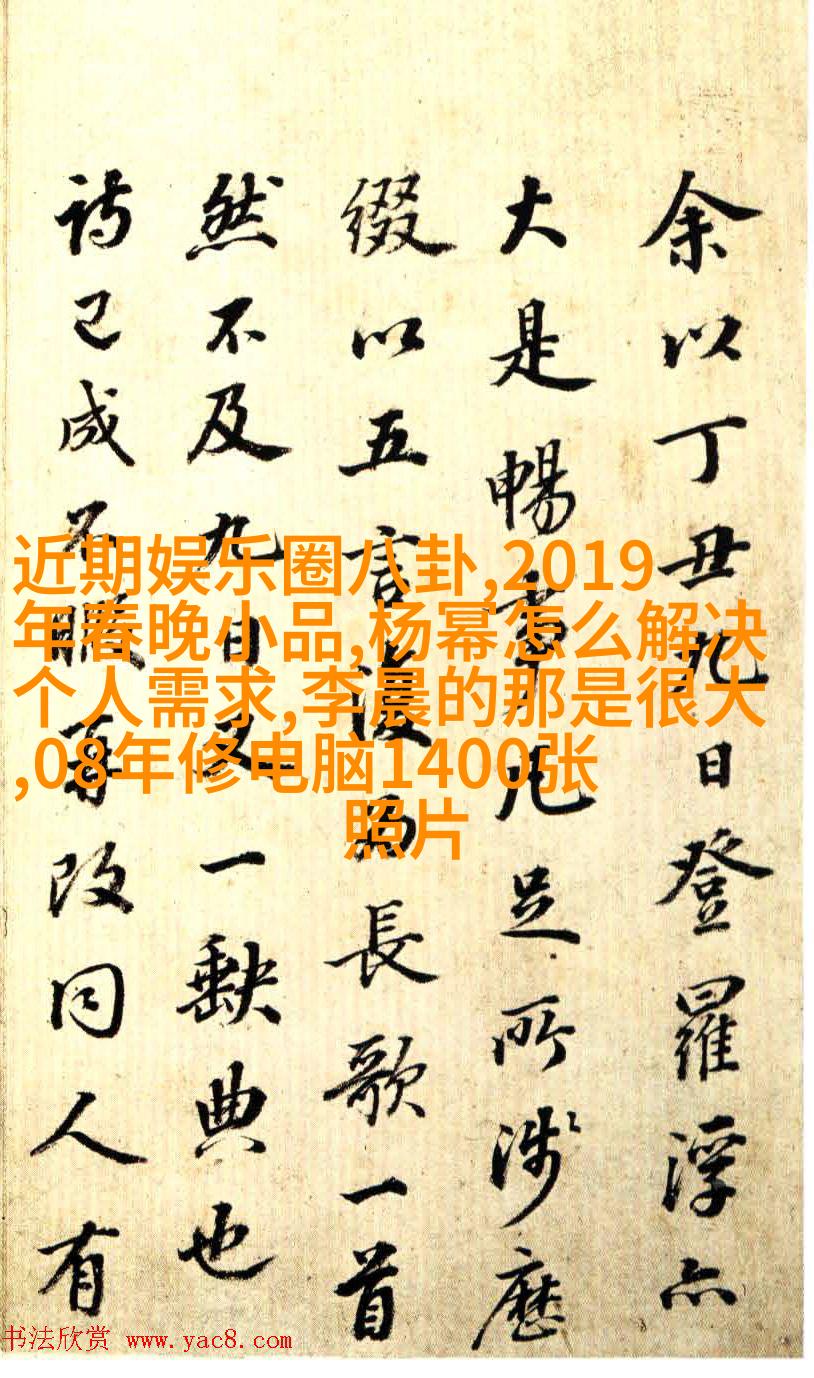 余以丁丑九日登羅浮亦
大是暢事凡足所涉歷
綴以五言復為長歌一首
然不及九日又一缺典也
詩已成不暇再改同人有
近期娱乐圈八卦,2019
年春晚小品,杨幂怎么解决
个人需求,李晨的那是很大
,08年修电脑1400张
照片
书法欣赏 www.yac8.com